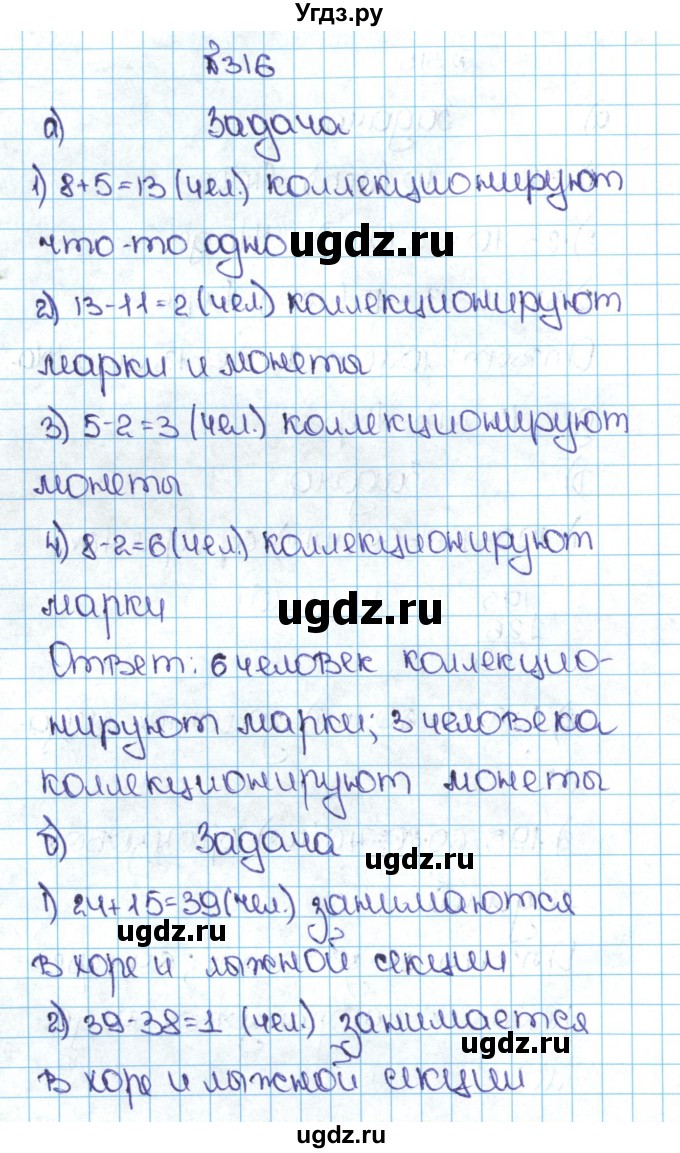 Угдз.ру
№316
а) Задача
1) 8+5=13 (чел.) коллекционируют
что-то одно
ugdz.ru
2) 13-11=2 (чел.) коллекционируют
марки и монеты
3) 5-2=3 (чел.) коллекционируют
монеты
4) 8-2=6 (чел.) коллекционируют
марки
ugdz.ru
Ответ: 6 человек коллекцио-
нируют марки; 3 человека
коллекционируют монеты
б) Задача
ugdz.ru
1) 24+15=39 (чел.) занимаются
ugdz.ru
в хоре и лыжной секции
2) 39-38=1 (чел.) занимается
ugdz.ru
в хоре и лыжной секции
ugdz.ru